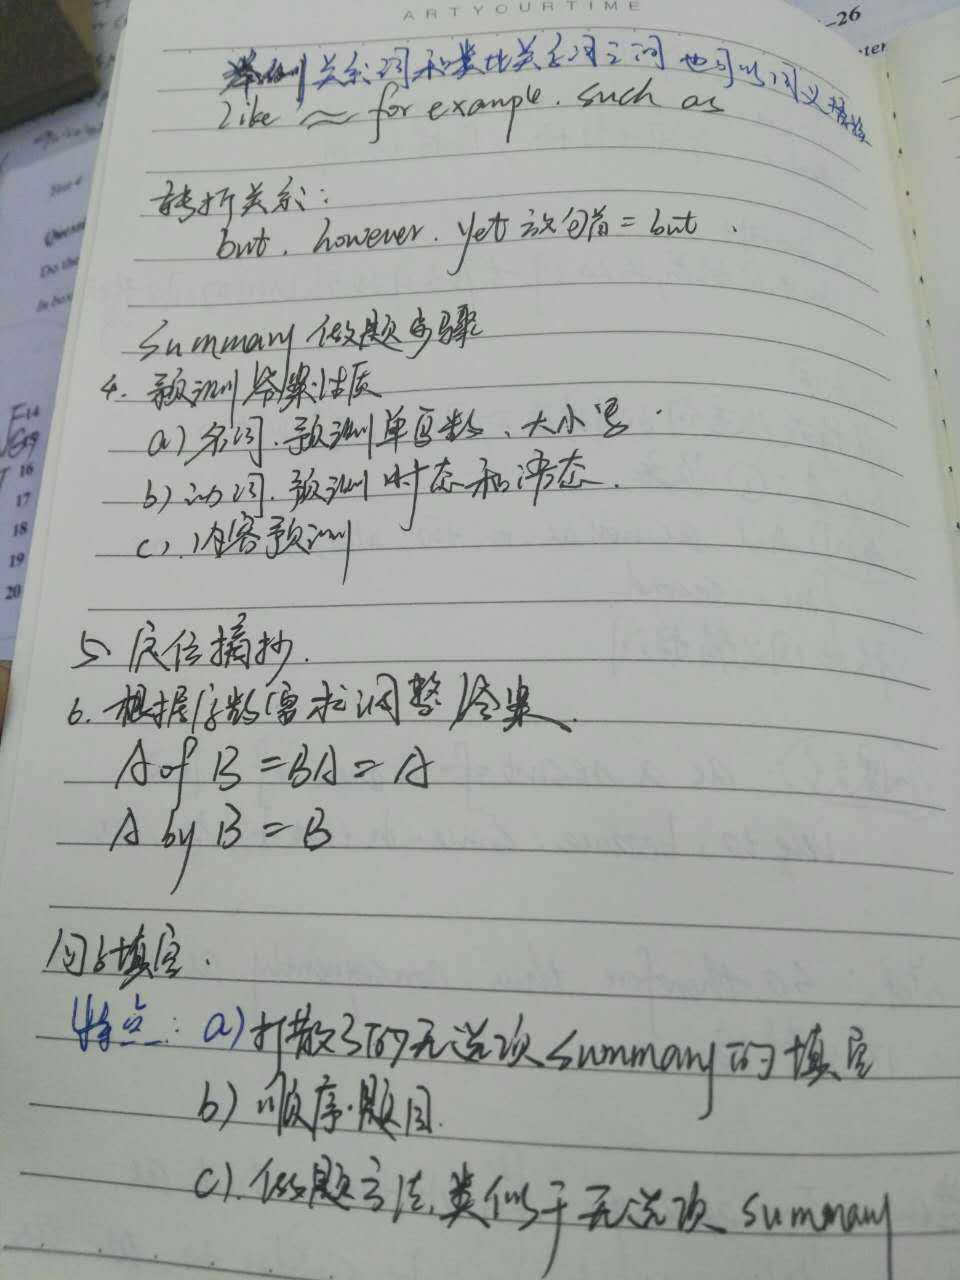 ARTYOURTIME
-26
举例关系词和类比关系词之间也可以同义替换
like ≈ for example. such as
转折关系:
but. however. yet 放句首 = but.
Summary 做题步骤
4. 预测答案性质
a) 名词. 预测单复数、大小写.
b) 动词. 预测时态和语态.
c). 内容预测
5. 定位摘抄.
6. 根据字数需求调整答案.
A of B = BA = A
A by B = B
句子填空.
特点: a) 打散了的无选项summary的填空
b) 顺序题目.
c). 做题方法,类似于无选项 summary
Test 4
Do the
In box
14
16
17
18
19
20